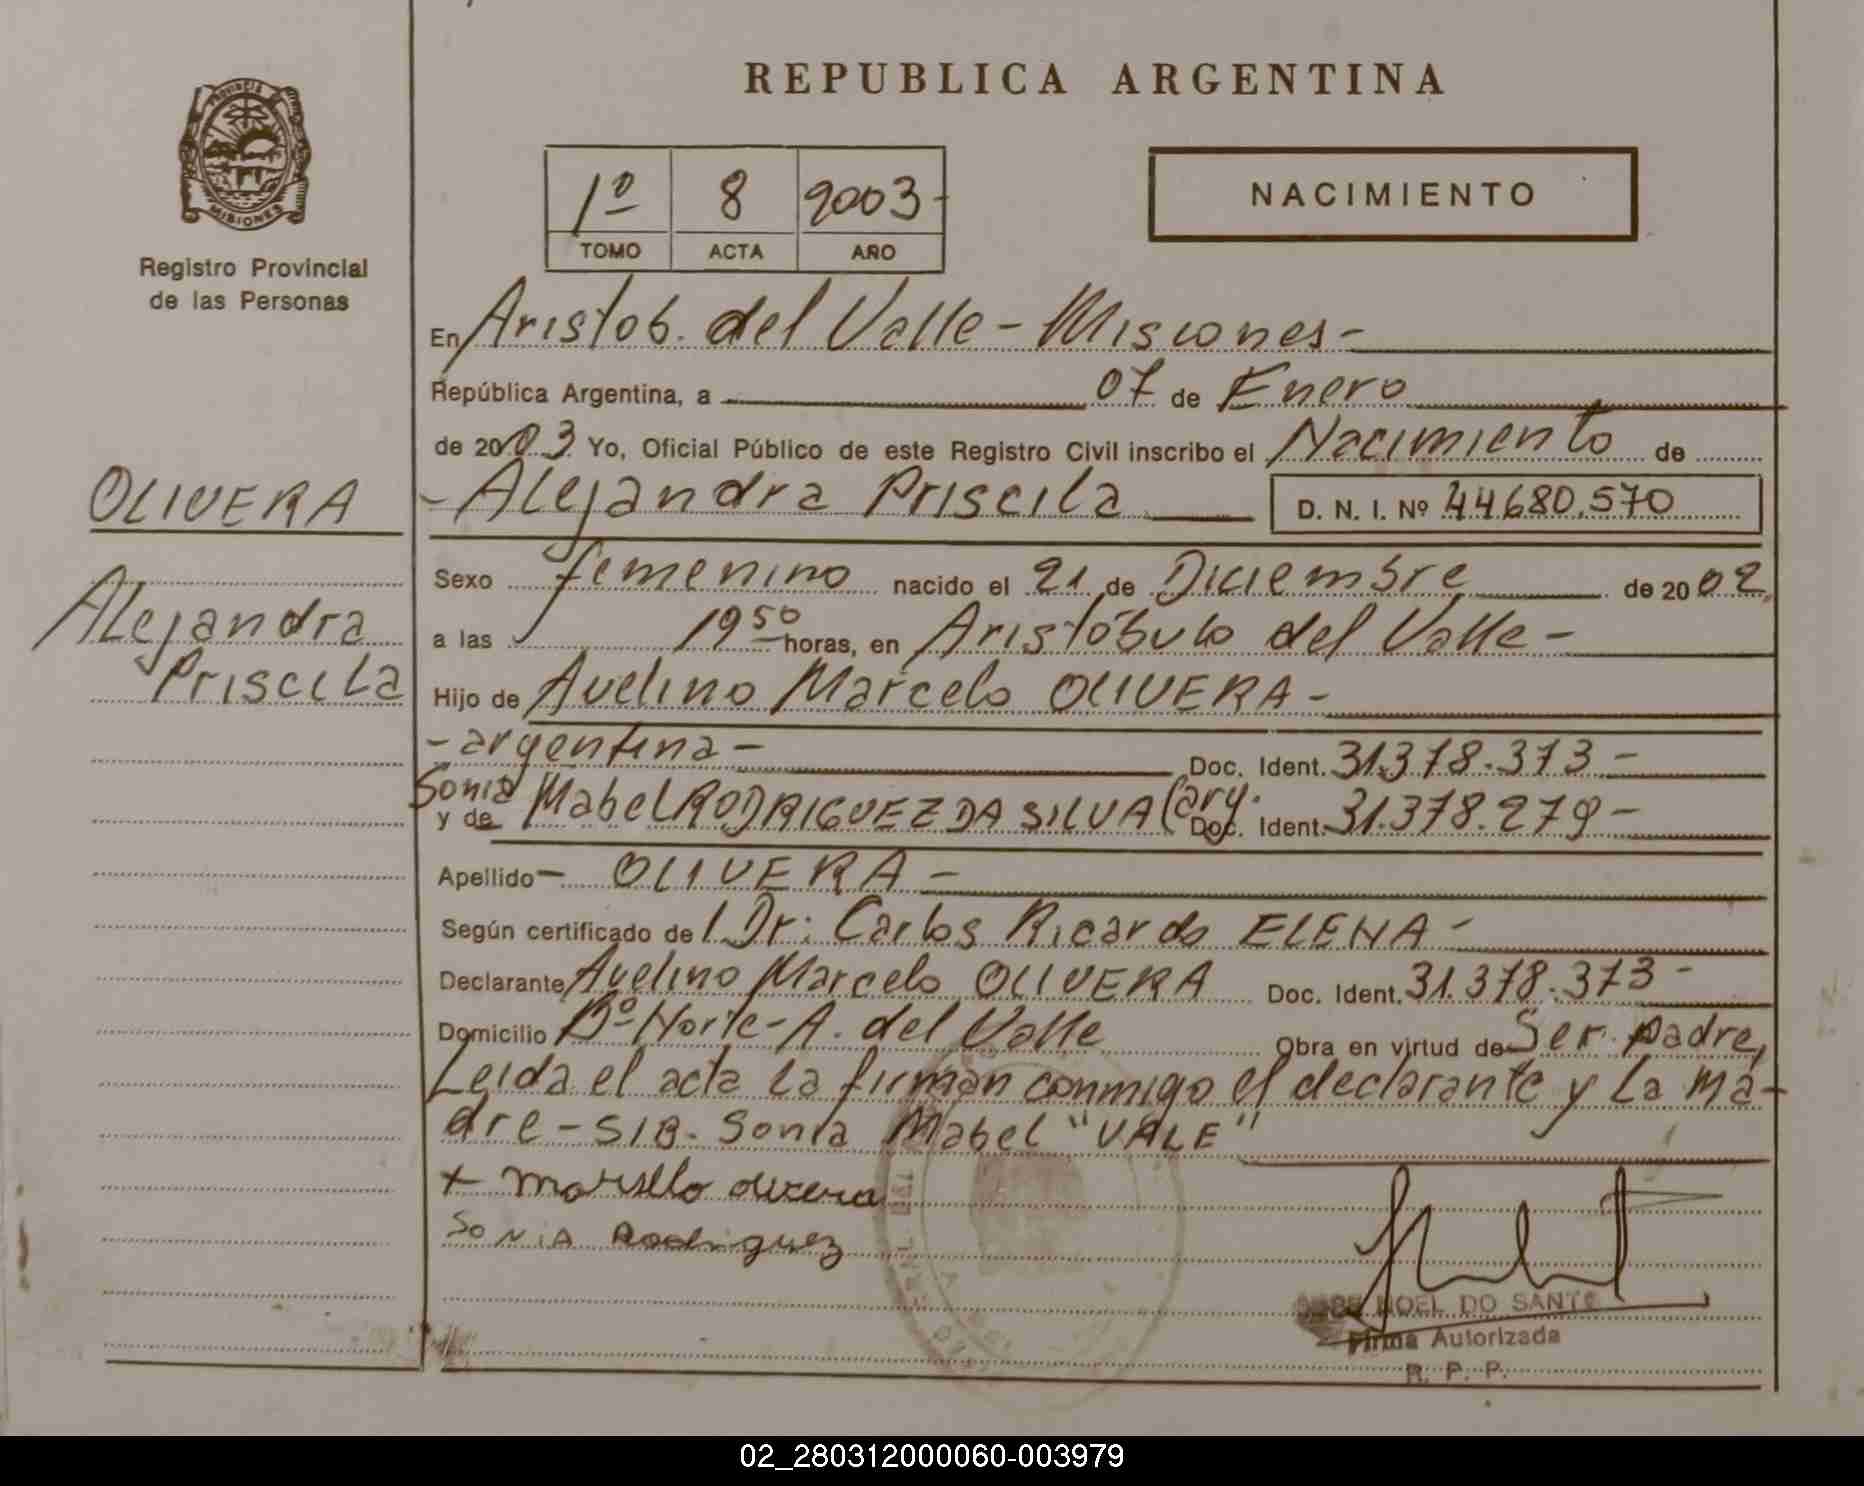 REPUBLICA ARGENTINA
PROVINCIA
MISIONES
Registro Provincial
de las Personas
1º 8 2003-
TOMO ACTA AÑO
NACIMIENTO
En Aristob. del Valle - Misiones -
República Argentina, a 07 de Enero
de 2003 Yo, Oficial Público de este Registro Civil inscribo el Nacimiento de
OLIVERA
- Alejandra Priscila D. N. I. Nº 44680.570
Sexo femenino nacido el 21 de Diciembre de 2002,
Alejandra
a las 19 50 horas, en Aristóbulo del Valle -
Priscila
Hijo de Avelino Marcelo OLIVERA -
- argentina - Doc. Ident. 31.378.373 -
Sonia
y de Mabel RODRIGUEZ DA SILVA (arg. Doc. Ident. 31.378.279 -
Apellido - OLIVERA -
Según certificado del Dr: Carlos Ricardo ELENA -
Declarante Avelino Marcelo OLIVERA Doc. Ident. 31.378.373 -
Domicilio Bº Norte - A. del Valle Obra en virtud de Ser padre,
Leida el acta la firman conmigo el declarante y la ma-
dre - S/B. Sonia Mabel "VALE"
+ Marsello olivera
Sonia Rodriguez
NOEL DO SANTO
Firma Autorizada
R. P. P.
02_280312000060-003979